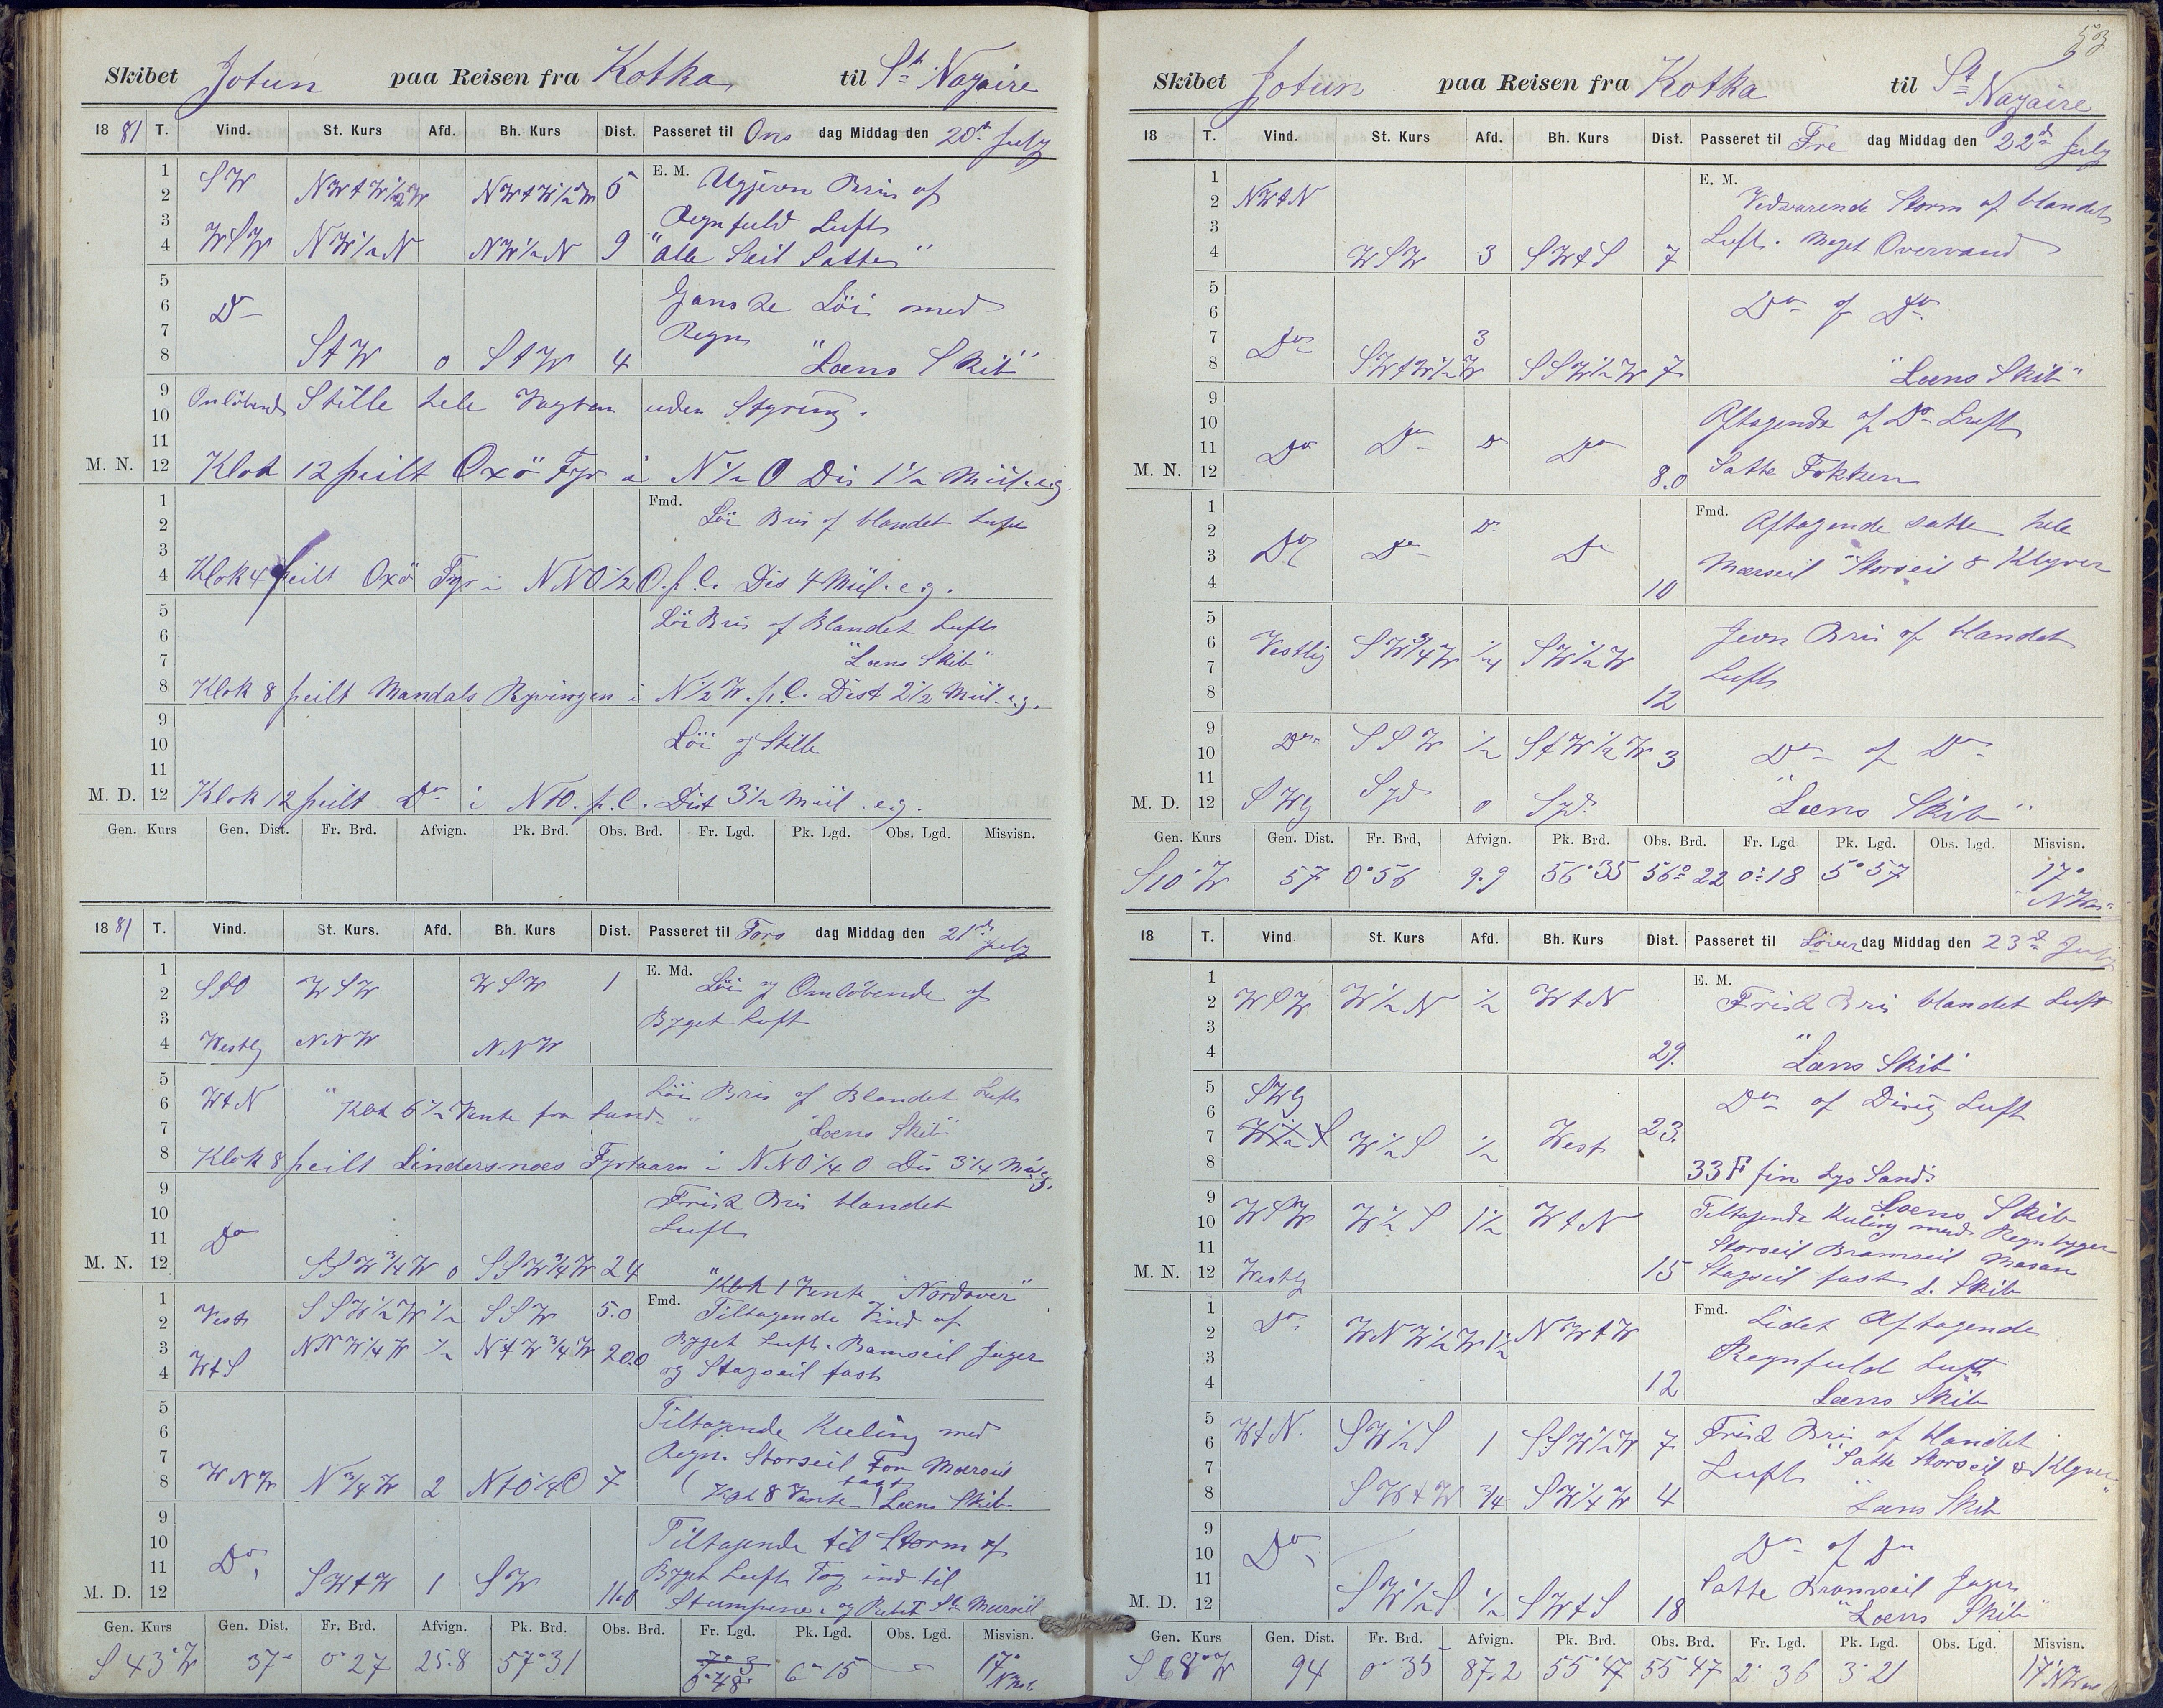 Skibet Jotun paa Reisen fra Kotka til St Nazaire
1881 T. Vind. St. Kurs Afd. Bh. Kurs Dist. Passeret til Ons dag Middag den 20de July
1
2 SW NWtW½W NWtW½W 5 E. M. Ugjevn Bris af
3 Regnfuld Luft
4 WSW NW½N NW½N 9 "Alle Seil Satte"
5
6 Do Ganske Löi med
7 Regn
8 StW 0 StW 4 "Læns Skib"
9 Omlöbende Stille hele Vagten uden Styring.
10
11
M. N. 12 Klok 12 peilt Oxö Fyr i N½O Dis 1½ Miil. e.g.
1 Fmd. Löi Bris af blandet Luft
2
3
4 Klok 4 peilt Oxö Fyr i NNO½O. p. C. Dis 4 Miil. e.g.
5 Löi Bris af Blandet Luft
6
7 "Læns Skib"
8 Klok 8 peilt Mandals Ryvingen i N½W. p. C. Dist 2½ Miil. e.g.
9
10 Löi og Stille
11
M. D. 12 Klok 12 peilt Do i NtO. p. C. Dist 3½ Miil. e.g.
Gen. Kurs Gen. Dist. Fr. Brd. Afvign. Pk. Brd. Obs. Brd. Fr. Lgd. Pk. Lgd. Obs. Lgd. Misvisn.
1881 T. Vind. St. Kurs. Afd. Bh. Kurs Dist. Passeret til Tors dag Middag den 21de July
1 E. Md. Löi og Omlöbende af
2 StO WSW WSW 1
3 Byget Luft
4 Westlg NNW NNW
5 Löi Bris af Blandet Luft
6 WtN "Klok 6½ Vente fra Land" "Læns Skib"
7
8 Klok 8 peilt Lindersnæs Fyrtaarn i NNO¼O Dis 3¼ Miil e.g.
9 Frisk Bris blandet
10 Luft
11 Do
M. N. 12 SSW¾W 0 SSW¾W 24 "Klok 1 Vente Nordover"
1 Fmd.
2 Vest SSW½W ½ SSW 5.0 Tiltagende Vind af
3 NNW¼W ½ NtW¾W 20.0 Byget Luft. Bramseil Jager
4 WtS og Stagseil fast
5 Tiltagende Kuling med
6 Regn. Storseil For Mærseil
7 fast
8 WNW N¾W 2 NtO¼O 7 (Klok 8 Vente) Læns Skib
9
10 Tiltagende til Storm af
11 Do Byget Luft Tog ind til
M. D. 12 SWtW 1 SW 11.0 Stumpene. og Rebet St. Mærseil
Gen. Kurs Gen. Dist. Fr. Brd. Afvign. Pk. Brd. Obs. Brd. Fr. Lgd. Pk. Lgd. Obs. Lgd. Misvisn.
S 43° W 37 0°27 25.8 57°31 0°48 6°15 17° NWest.
53
Skibet Jotun paa Reisen fra Kotka til St Nazaire
18 T. Vind. St. Kurs Afd. Bh. Kurs Dist. Passeret til Fre dag Middag den 22de July
1 E. M.
2 NWtN Vedvarende Storm af blandet
3 Luft. Meget Overvand
4 WSW 3 SWtS 7
5
6 Do af Do
7 3
8 Do SWtW½W SSW½W 7 "Læns Skib"
9
10 Aftagende af Do Luft
11 Do Do Do Do
M. N. 12 8.0 Satte Fokken
1 Fmd. Aftagende satte hele
2 Do
3 Do Do Do Mærseil Storseil & Klyver
4 10
5
6 Vestlig SW¾W ¼ SW½W Jevn Bris af blandet
7 Luft
8 12
9
10 Do SSW ½ StW½W 3 Do af Do
11
M. D. 12 SWlg Syd 0 Syd. "Læns Skib"
Gen. Kurs Gen. Dist. Fr. Brd, Afvign. Pk. Brd. Obs. Brd. Fr. Lgd Pk. Lgd. Obs. Lgd. Misvisn.
S 10° W 57 0°56 9.9 56°35 56°22 0°18 5°57 17° NWes
18 T. Vind. St. Kurs. Afd. Bh. Kurs Dist. Passeret til Löver dag Middag den 23de July
1 E. M.
2 WSW W½N ½ WtN Frisk Bris blandet Luft
3
4 29. "Læns Skib
5 SWlg Do af Disig Luft
6
7 W½S W½S ½ West 23.
8 33 F fin Lys Sand:
9 Læns Skib
10 WSW W½S 1½ WtN Tiltagende Kuling med Regn byger
11 Storseil Bramseil Mesan
M. N. 12 Westlg 15 Stagseil fast L. Skib
1 Fmd. Lidet Aftagende
2 Do WNW½W 1½ NWtW
3 Regnfuld Luft
4 12 Læns Skib
5
6 WtN. SW½S 1 SSW½W 7 Frisk Bris af blandet
7 Luft "Satte Storseil & Klyver"
8 SWtW ¾ SW¼W 4 Læns Skib
9
10 Do Do af Do
11 Satte Bramseil Jager
M. D. 12 SW½S ½ SWtS 18 "Læns Skib"
Gen. Kurs Gen. Dist. Fr. Brd. Afvign. Pk. Brd. Obs. Brd. Fr. Lgd. Pk. Lgd. Obs. Lgd. Misvisn.
S 68° W 94 0°35 87.2 55°47 55°47 2°36 3°21 17° NWes